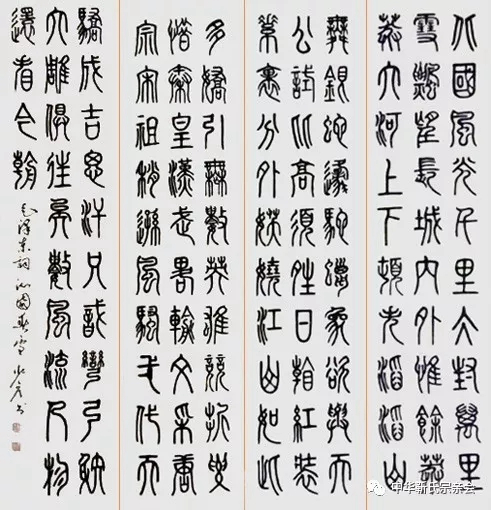 北國風光千里冰封萬里
雪飄望長城內外惟餘莽
莽大河上下頓失滔滔山
舞銀蛇原馳蠟象欲與天
公試比高須晴日看紅裝
素裹分外妖嬈江山如此
多嬌引無數英雄競折腰
惜秦皇漢武略輸文采唐
宗宋祖稍遜風騷一代天
驕成吉思汗只識彎弓射
大雕俱往矣數風流人物
還看今朝
毛澤東詞沁園春雪 書
中华靳氏宗亲会